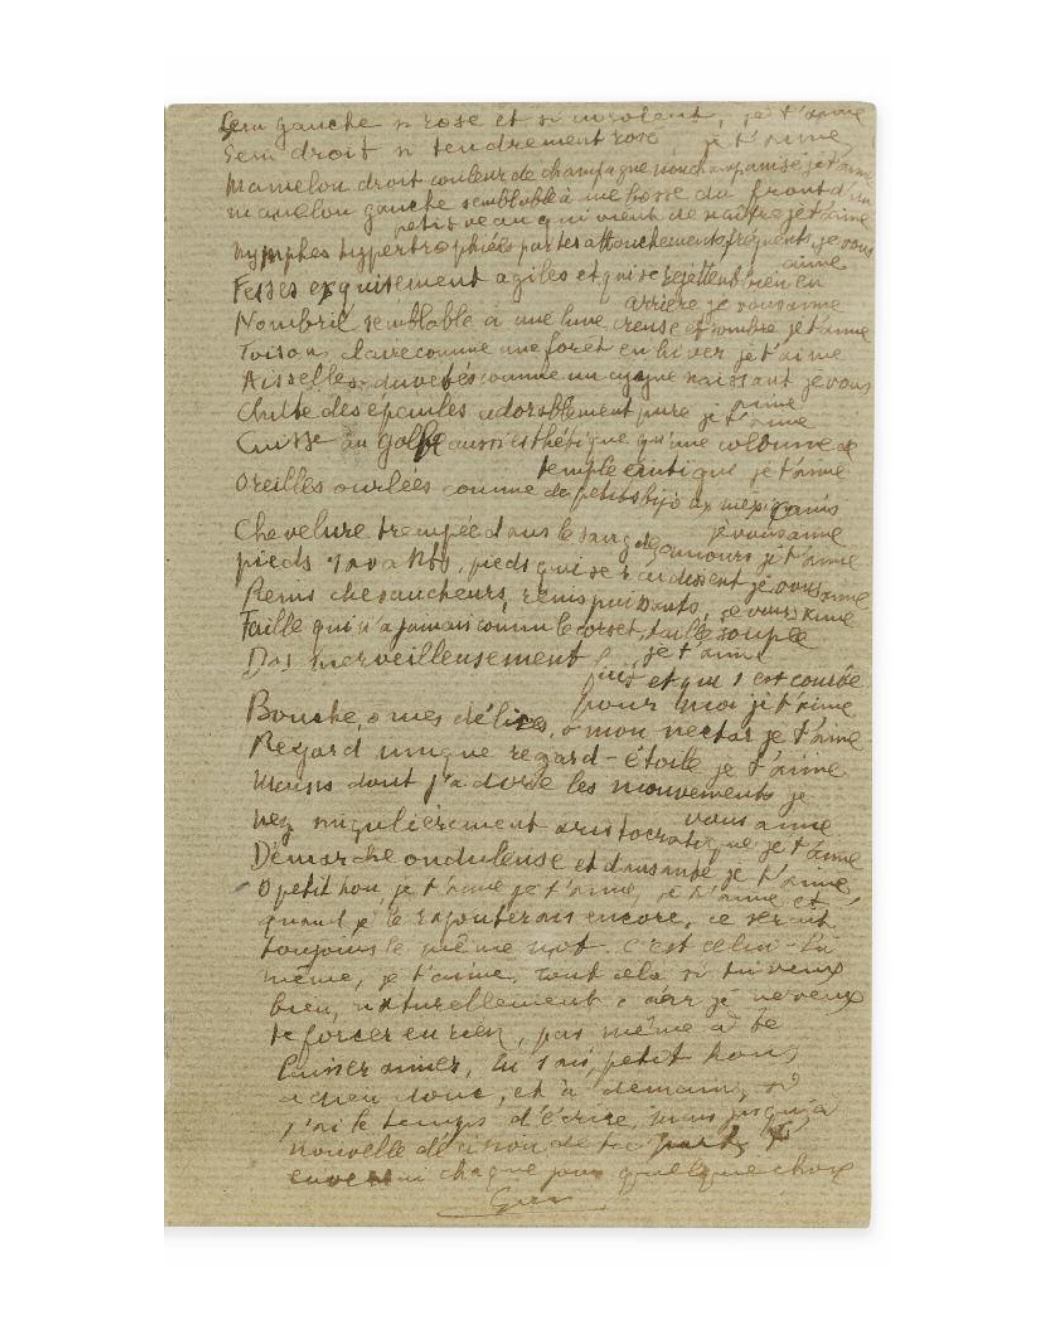 Sein gauche si rose et si insolent, je t'aime
Sein droit si tendrement rosé, je t'aime
Mamelon droit couleur de champagne non champanisé je t'aime
mamelon gauche semblable à une bosse du front d'un
petit veau qui vient de naître je t'aime
Nymphes hypertrophiées par tes attouchements fréquents, je vous
aime
Fesses exquisement agiles et qui se rejettent bien en
arrière je vous aime
Nombril semblable à une lune creuse et sombre je t'aime
Toison claire comme une forêt en hiver je t'aime
Aisselles duvetés comme un cygne naissant je vous
aime
Chutte des épaules adorablement pure je t'aime
Cuisse au galbe aussi esthétique qu'une colonne de
temple antique je t'aime
Oreilles ourlées comme de petits bijoux mexicains
je vous aime
Chevelure trempée dans le sang des amours je t'aime
pieds savants, pieds qui se raidissent je vous aime
Reins chevaucheurs, reins puissants, je vous aime
Taille qui n'a jamais connu le corset, taille souple
je t'aime
Dos merveilleusement
fait et qui s'est courbé
pour moi je t'aime
Bouche, ô mes délices, ô mon nectar je t'aime
Regard unique regard-étoile je t'aime
Mains dont j'adore les mouvements je
vous aime
Nez singulièrement aristocratique je t'aime
Démarche onduleuse et dansante je t'aime
O petit Lou, je t'aime je t'aime, je t'aime et
quand je le rajouterais encore, ce serait
toujours le même mot. C'est celui-là
même, je t'aime. Tout cela si tu veux
bien, naturellement, car je ne veux
te forcer en rien, pas même à te
laisser aimer, tu sais, petit Lou,
adieu donc, et à demain, si
j'ai le temps d'écrire, mais jusqu'à
nouvelle décision de ta part, je
enverrai chaque jour quelque chose
Gui